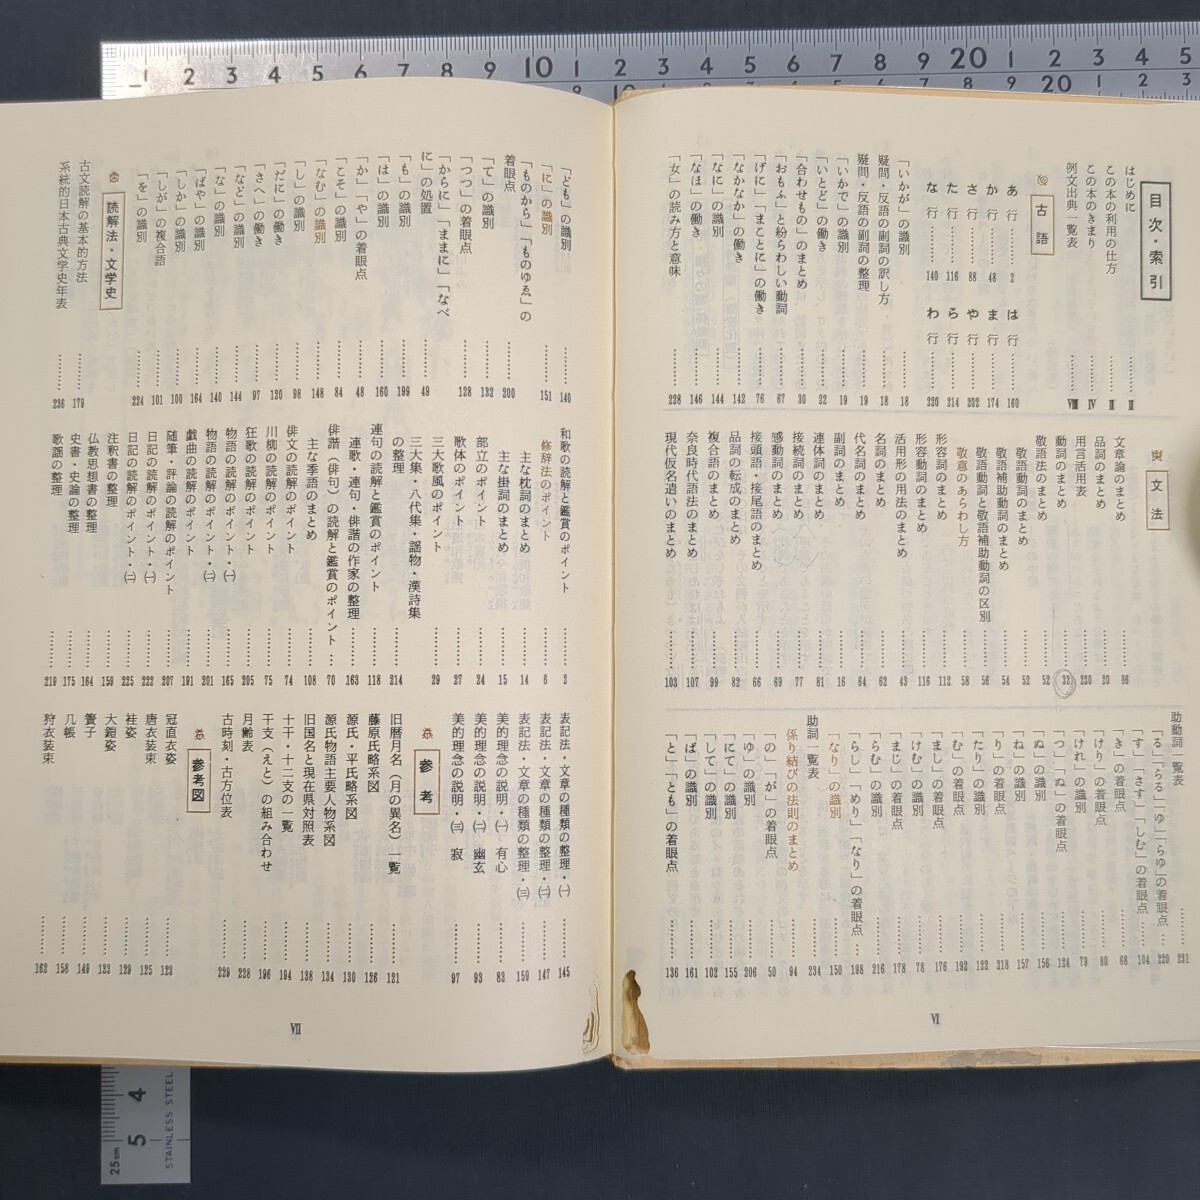 目次・索引
はじめに Ⅱ
この本の利用の仕方 Ⅲ
この本のきまり Ⅳ
例文出典一覧表 Ⅷ
古語
あ行 2
か行 48
さ行 88
た行 116
な行 140
は行 160
ま行 174
や行 202
ら行 214
わ行 220
「いかが」の識別 18
疑問・反語の副詞の訳し方 18
疑問・反語の副詞の整理 19
「いかで」の識別 19
「いとど」の働き 22
「合わせもの」のまとめ 30
「おもふ」と紛らわしい動詞 67
「げに」「まことに」の働き 76
「なかなか」の働き 142
「なに」の識別 144
「なほ」の働き 146
「女」の読み方と意味 228
文法
文章論のまとめ 86
品詞のまとめ 20
用言活用表 230
動詞のまとめ 32
敬語法のまとめ 52
敬語動詞のまとめ 52
敬語補助動詞のまとめ 54
敬語動詞と敬語補助動詞の区別 56
敬意のあらわし方 58
形容詞のまとめ 112
形容動詞のまとめ 116
活用形の用法のまとめ 43
名詞のまとめ 62
代名詞のまとめ 64
副詞のまとめ 16
連体詞のまとめ 81
接続詞のまとめ 77
感動詞のまとめ 69
接頭語・接尾語のまとめ 66
品詞の転成のまとめ 82
複合語のまとめ 99
奈良時代語法のまとめ 107
現代仮名遣いのまとめ 103
助動詞一覧表 231
「る」「らる」「ゆ」「らゆ」の着眼点 220
「す」「さす」「しむ」の着眼点 104
「き」の着眼点 68
「けり」の着眼点 80
「けれ」の識別 79
「つ」「ぬ」の着眼点 124
「ぬ」の識別 156
「ね」の識別 157
「り」の着眼点 218
「たり」の識別 122
「む」の着眼点 192
「まし」の着眼点 176
「けむ」の識別 78
「まじ」の着眼点 178
「らむ」の識別 216
「らし」「めり」「なり」の着眼点 198
「なり」の識別 150
助詞一覧表 234
係り結びの法則のまとめ 94
「の」「が」の着眼点 50
「ゆ」の識別 206
「にて」の識別 155
「して」の識別 102
「ば」の識別 161
「と」「とも」の着眼点 136
Ⅵ
「ども」の識別 140
「に」の識別 151
「ものから」「ものゆゑ」の
着眼点 200
「て」の識別 132
「つつ」の着眼点 128
「からに」「ままに」「なべ
に」の処置 49
「も」の識別 199
「は」の識別 160
「か」「や」の着眼点 48
「こそ」の識別 84
「なむ」の識別 148
「し」の識別 98
「だに」の働き 120
「さへ」の働き 97
「など」の識別 144
「な」の識別 140
「ばや」の識別 164
「しか」の識別 100
「しが」の複合語 101
「を」の識別 224
読解法・文学史
古文読解の基本的方法 179
系統的日本古典文学史年表 236
和歌の読解と鑑賞のポイント 2
修辞法のポイント 6
主な枕詞のまとめ 14
主な掛詞のまとめ 15
部立のポイント 24
歌体のポイント 27
三大歌風のポイント 29
三大集・八代集・謡物・漢詩集
の整理 214
連句の読解と鑑賞のポイント 118
連歌・連句・俳諧の作家の整理 163
俳諧（俳句）の読解と鑑賞のポイント 70
主な季語のまとめ 108
俳文の読解のポイント 74
川柳の読解のポイント 75
狂歌の読解のポイント 205
物語の読解のポイント・(一) 165
物語の読解のポイント・(二) 201
戯曲の読解のポイント 191
随筆・評論の読解のポイント 207
日記の読解のポイント・(一) 222
日記の読解のポイント・(二) 225
注釈書の整理 159
仏教思想書の整理 164
史書・史論の整理 175
歌謡の整理 219
表記法・文章の種類の整理・(一) 145
表記法・文章の種類の整理・(二) 147
表記法・文章の種類の整理・(三) 159
美的理念の説明・(一) 有心 83
美的理念の説明・(二) 幽玄 93
美的理念の説明・(三) 寂 97
参考
旧暦月名（月の異名）一覧 121
藤原氏略系図 126
源氏・平氏略系図 130
源氏物語主要人物系図 134
旧国名と現在県対照表 138
十干・十二支の一覧 194
干支（えと）の組み合わせ 196
月齢表 228
古時刻・古方位表 229
参考図
冠直衣姿 123
唐衣装束 125
袿姿 129
大鎧姿 133
簀子 149
几帳 158
狩衣装束 162
Ⅶ
1 2 3 4 5 6 7 8 9 10 1 2 3 4 5 6 7 8 9 20 1 2 3 4 5
10 1 2 3 4 5 6 7 8 9 20 1 2 3
4
5
25cm
STAINLESS STEEL